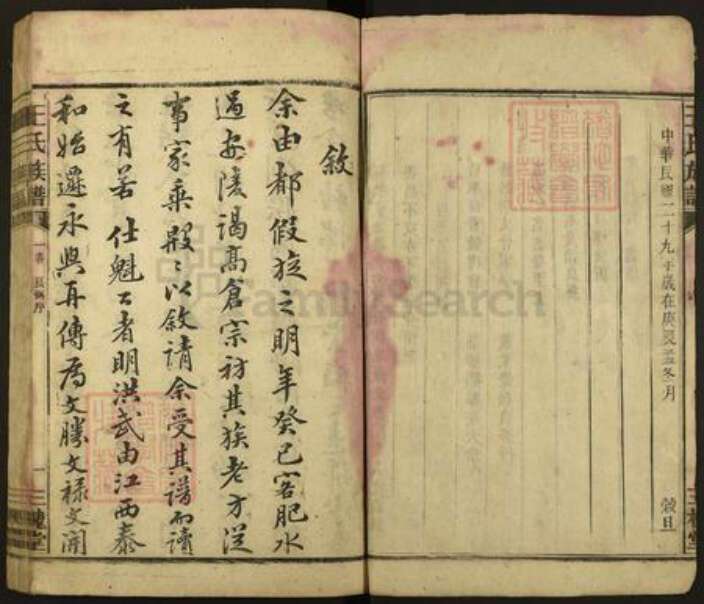 中華民國二十九年歲在庚辰孟冬月 穀旦
敘
余由都假旋之明年癸巳客肥水
過安陵謁高倉宗祠其族老方從
事家乘殷殷以敘請余受其譜而讀
之有若仕魁公者明洪武由江西泰
和始遷永興再傳為文勝文祿文開
王氏族譜
三槐堂
FamilySearch